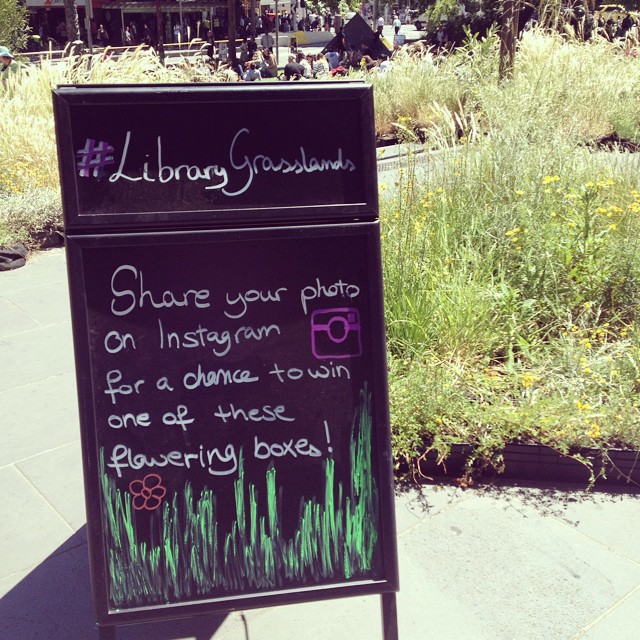 #LibraryGrasslands
Share your photo
on Instagram
for a chance to win
one of these
flowering boxes!